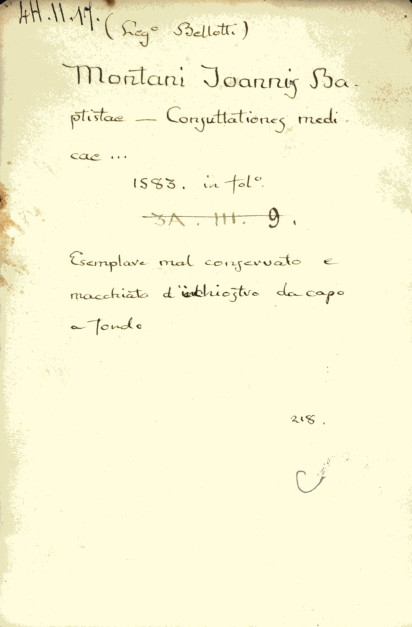 4H.II.17. (Leg° Bellotti)
Montani Joannis Ba-
ptistae — Consultationes medi-
cae ...
1583. in fol°.
3A. III. 9.
Esemplare mal conservato e
macchiato d'inchiostro da capo
a fondo
218.